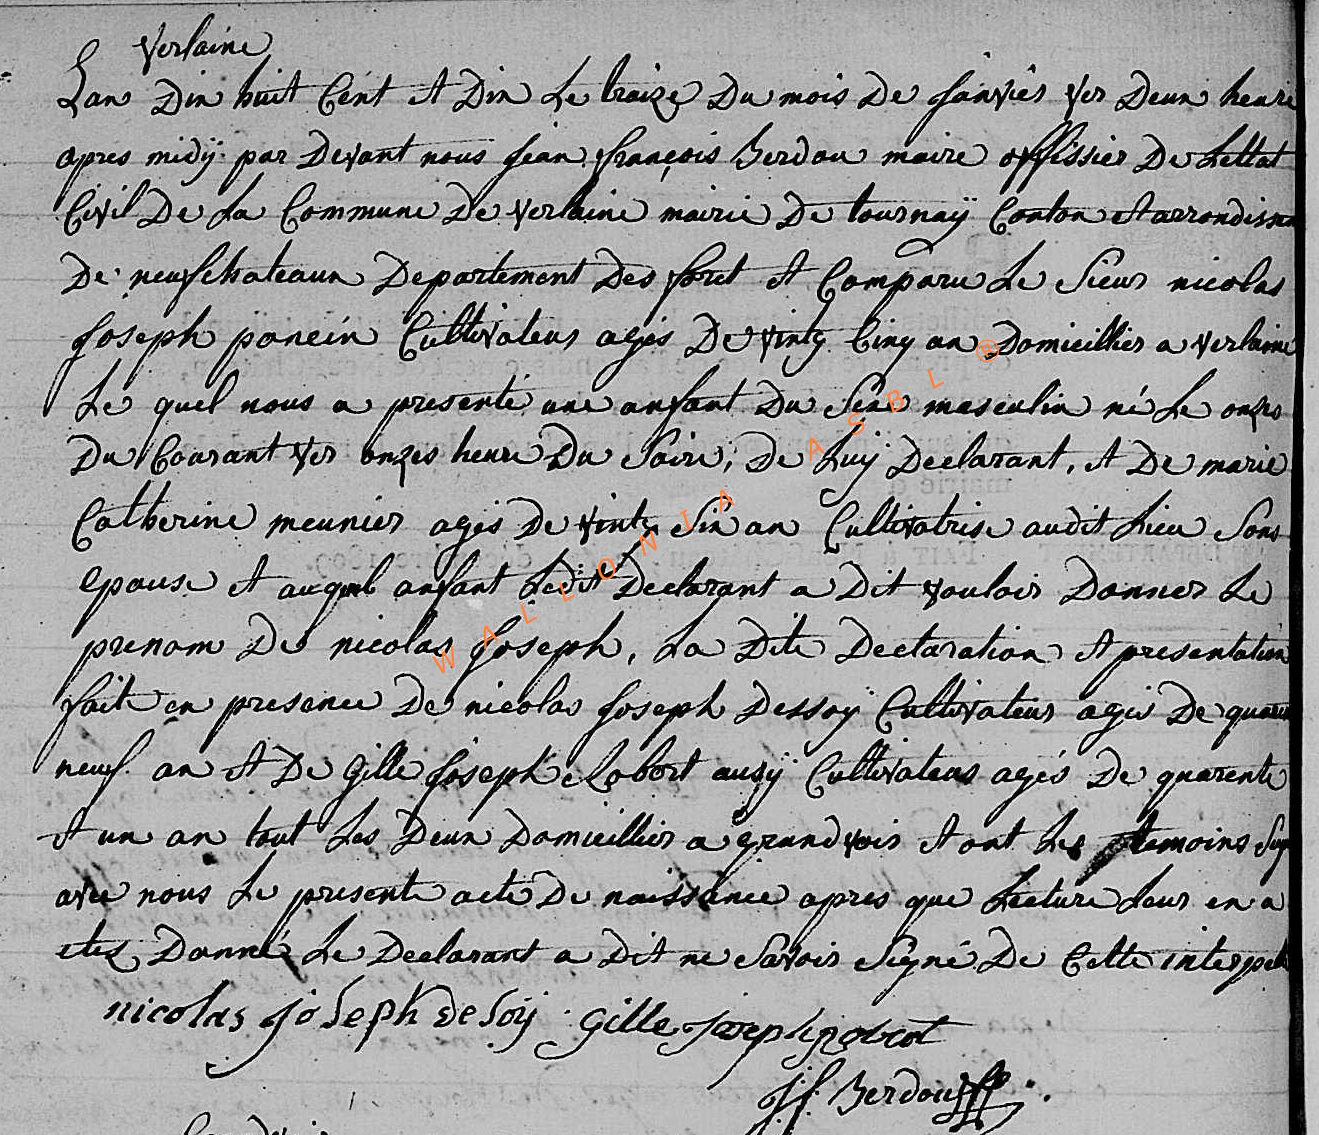 Verlaine
Lan Dix huit Cent et Dix Le traize Du mois De janvier ver Deux heure
apres midÿ par Devant nous jean françois Berdou maire offissier De Lettat
Civil De La Commune De verlaine mairie De tournaÿ Conton et arrondissem
De neufchateaux Departement Des foret et Comparu Le Sieur nicolas
joseph poncin Cultivateur agés De vintq Cinq an Domicillier a verlaine
Le quel nous a presenté une anfant Du Sexe masculin né Le onzes
Du Courant ver onzes heure Du Soire, De Luÿ Declarant, et De marie
Catherine meunier agés De vintq Six an Cultivatrise audit Lieu Sons
epouse et auquel anfant Ledit Declarant a Dit vouloir Donner Le
prenom De nicolas joseph, La Dite Declaration et presentation
fait en presence De nicolas joseph Dessoÿ Cultivateur agés De quaran
neuf an et De gille joseph Robert ausÿ Cultivateur agés De quarente
et un an tout Les Deux Domicillier a grandvoir et ont Les temoins Sig
avec nous Le presente acte De naissance apres que Lecture Leur en a
etez Donné Le Declarant a Dit ne Savoir Signé De Cette interpel
nicolas joseph de soiÿ gille joseph robert
j f Berdou
WALLONIA ASBL ®